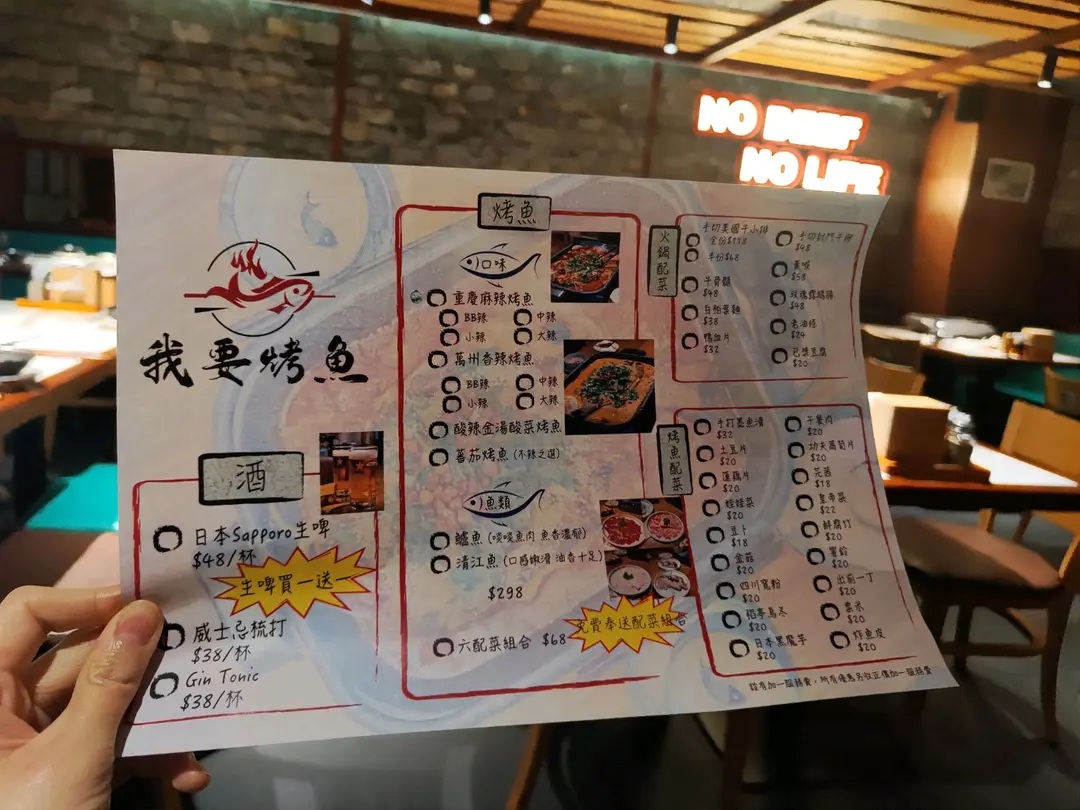 NO BEEF
NO LIFE
我要烤魚
酒
日本Sapporo生啤
$48/杯
生啤買一送一
威士忌梳打
$38/杯
Gin Tonic
$38/杯
烤魚
口味
重慶麻辣烤魚
BB辣
中辣
小辣
大辣
萬州香辣烤魚
BB辣
中辣
小辣
大辣
酸辣金湯酸菜烤魚
蕃茄烤魚 (不辣之選)
魚類
鱸魚 (啖啖魚肉 魚香濃郁)
清江魚 (口感嫩滑 油香十足)
$298
六配菜組合 $68
免費奉送配菜組合
火鍋配菜
手切美國牛小排
全份$118
半份$68
牛骨髓
$48
$38
鴨血片
$32
$48
黃喉
$58
玫瑰露鴨腸
$48
老油條
$24
$20
烤魚配菜
手打墨魚滑
$32
土豆片
$20
蓮藕片
$20
娃娃菜
$20
豆卜
$18
金菇
$20
四川寬粉
$20
稻亭烏冬
$20
日本黑魔芋
$20
午餐肉
$20
功夫萵筍片
$20
芫茜
$18
皇帝菜
$22
鮮腐竹
$20
響鈴
$20
出前一丁
$20
粟米
$20
炸魚皮
$20
設有加一服務費，所有優惠另收正價加一服務費